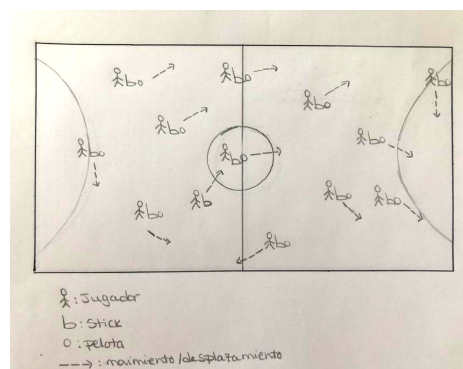 : Jugador
b: Stick
o: pelota
---> : movimiento/desplazamiento